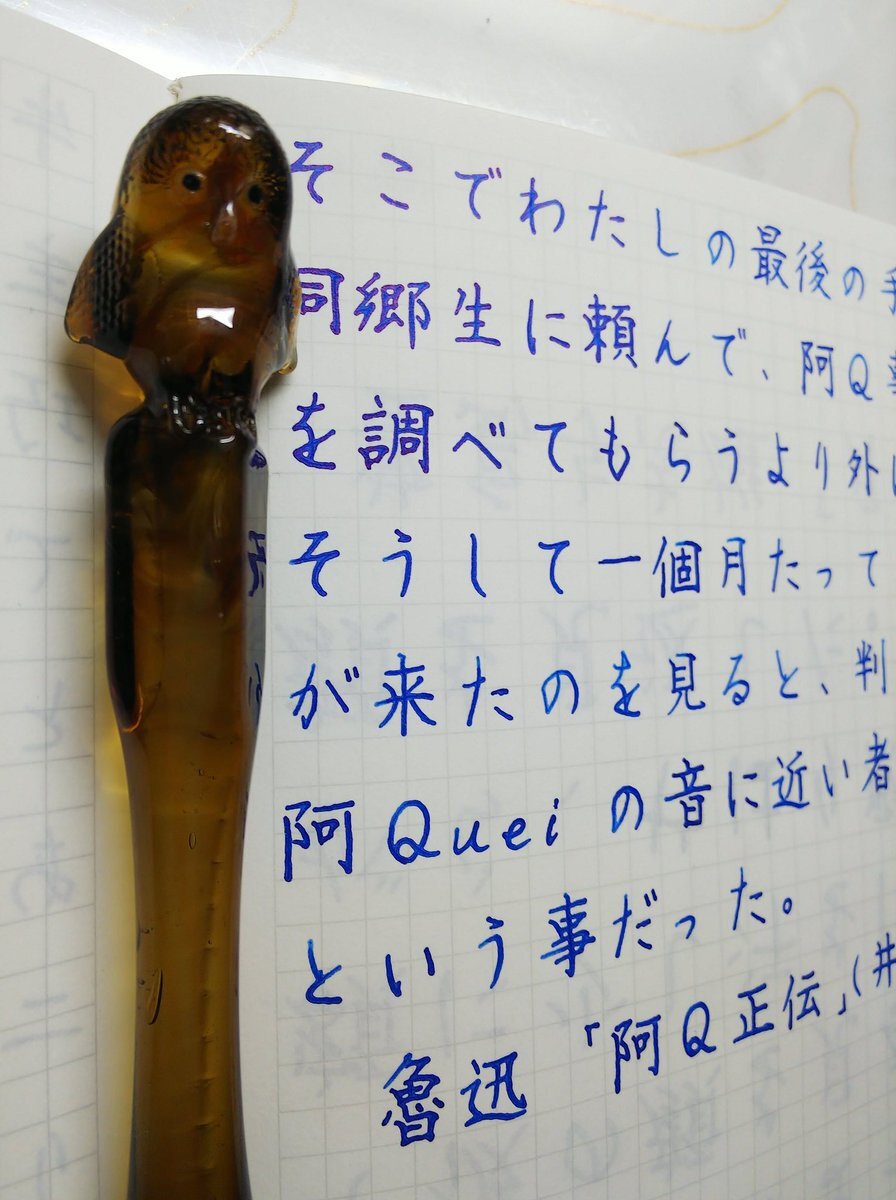 そこでわたしの最後の手
同郷生に頼んで、阿Q事
を調べてもらうより外に
そうして一個月たって
が来たのを見ると、判
阿Queiの音に近い者
という事だった。
魯迅「阿Q正伝」(井